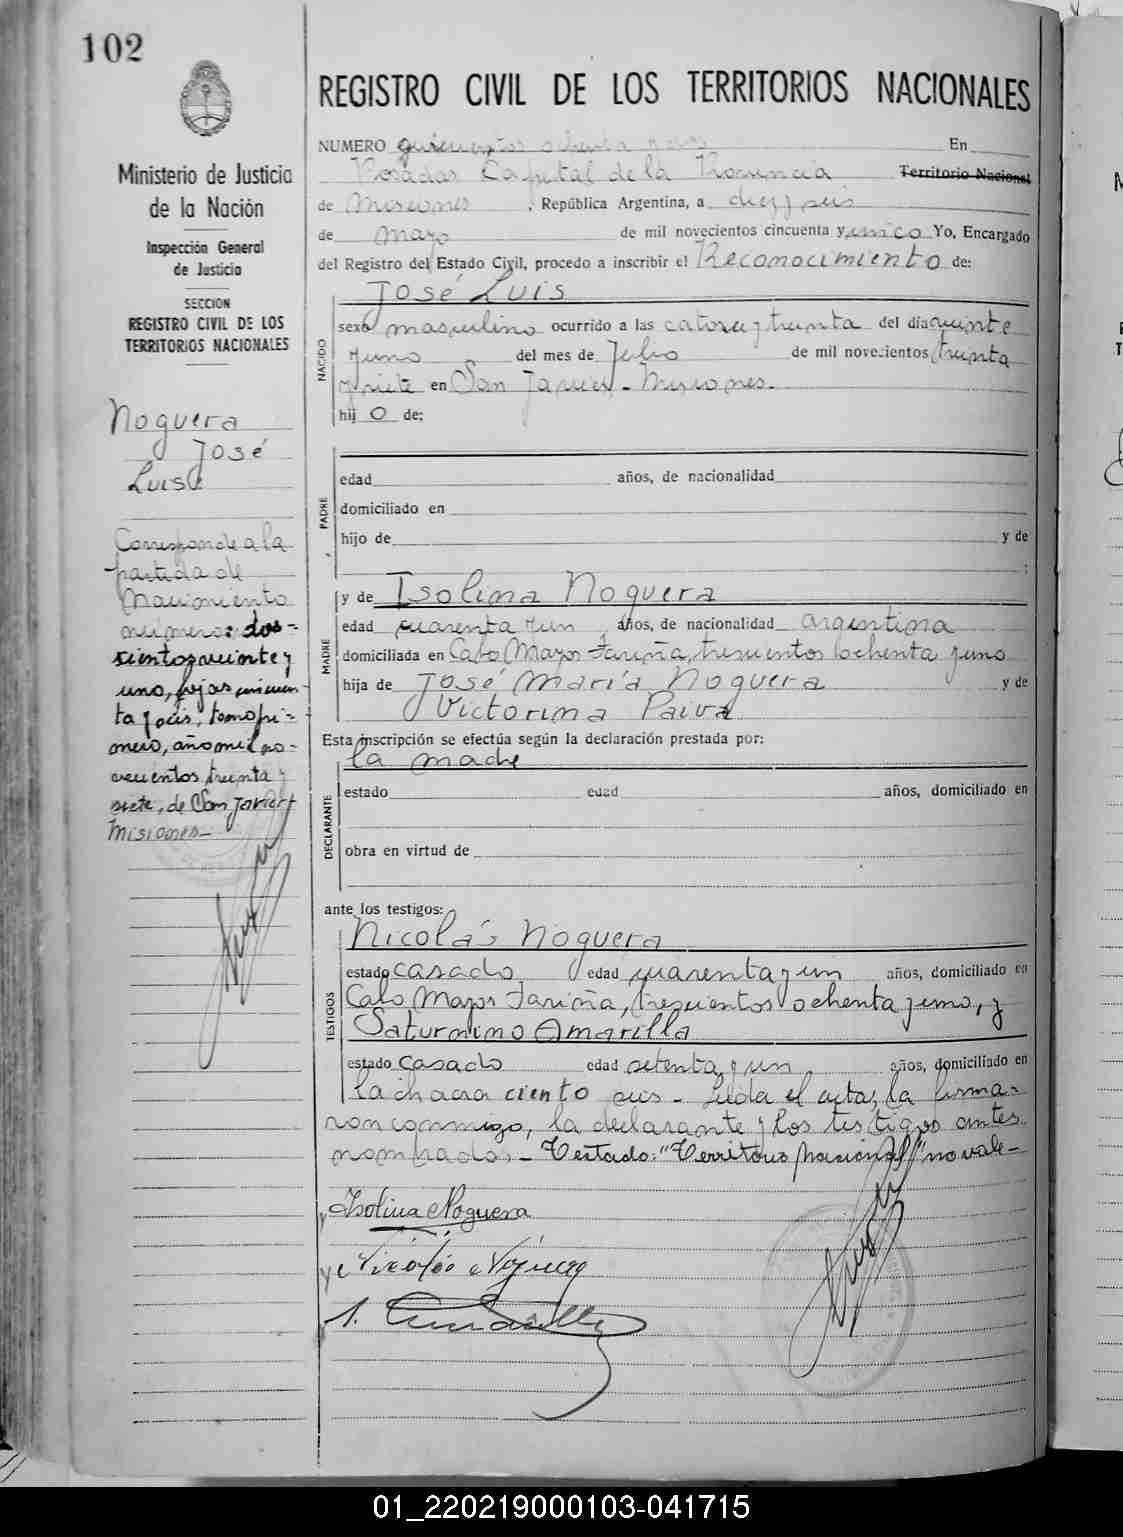 102
Ministerio de Justicia
de la Nación
Inspección General
de Justicia
SECCION
REGISTRO CIVIL DE LOS
TERRITORIOS NACIONALES
Noguera
José
Luis.
Corresponde a la
partida de
Nacimiento
número: dos-
cientos veinte y
uno, fojas cincuen-
ta y seis, tomo pri-
mero, año mil no-
vecientos treinta y
siete, de San Javier,
Misiones-
REGISTRO CIVIL DE LOS TERRITORIOS NACIONALES
NUMERO quinientos ochenta y dos En
Posadas Capital de la Provincia Territorio Nacional
de Misiones, República Argentina, a diez y seis
de mayo de mil novecientos cincuenta y cinco Yo, Encargado
del Registro del Estado Civil, procedo a inscribir el Reconocimiento de:
José Luis
NACIDO
sexo masculino ocurrido a las catorce y treinta del día veinte
y uno del mes de Julio de mil novecientos treinta
y siete en San Javier - Misiones.-
hijo de:
PADRE
edad años, de nacionalidad
domiciliado en
hijo de y de
;
MADRE
y de Isolina Noguera
edad cuarenta y un años, de nacionalidad argentina
domiciliada en Cabo Mayor Fariña, trescientos ochenta y uno
hija de José María Noguera y de
Victorina Paiva
Esta inscripción se efectúa según la declaración prestada por:
la madre
DECLARANTE
estado edad años, domiciliado en
obra en virtud de
ante los testigos:
Nicolás Noguera
TESTIGOS
estado casado edad cuarenta y un años, domiciliado en
Cabo Mayor Fariña, trescientos ochenta y uno, y
Saturnino Amarilla
estado casado edad setenta y un años, domiciliado en
la chacra ciento seis - Leída el acta, la firma-
ron conmigo, la declarante y los testigos antes
nombrados.- Testado: "Territorio Nacional" no vale-
Isolina Noguera
Nicolás Noguera
S. Amarilla
01_220219000103-041715